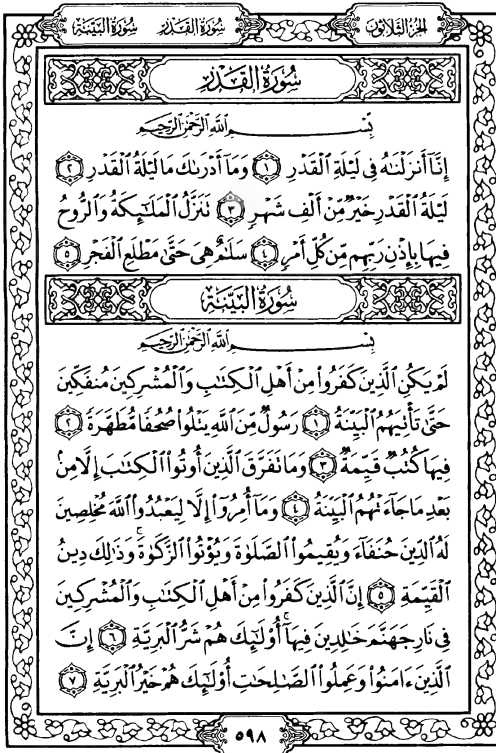 الجزء الثلاثون
سورة القدر سورة البينة
سُورَةُ القَدْرِ
بِسْمِ اللَّهِ الرَّحْمَٰنِ الرَّحِيمِ
إِنَّا أَنزَلْنَاهُ فِي لَيْلَةِ الْقَدْرِ ١ وَمَا أَدْرَاكَ مَا لَيْلَةُ الْقَدْرِ ٢
لَيْلَةُ الْقَدْرِ خَيْرٌ مِّنْ أَلْفِ شَهْرٍ ٣ تَنَزَّلُ الْمَلَائِكَةُ وَالرُّوحُ
فِيهَا بِإِذْنِ رَبِّهِم مِّن كُلِّ أَمْرٍ ٤ سَلَامٌ هِيَ حَتَّىٰ مَطْلَعِ الْفَجْرِ ٥
سُورَةُ البَيِّنَةِ
بِسْمِ اللَّهِ الرَّحْمَٰنِ الرَّحِيمِ
لَمْ يَكُنِ الَّذِينَ كَفَرُوا مِنْ أَهْلِ الْكِتَابِ وَالْمُشْرِكِينَ مُنفَكِّينَ
حَتَّىٰ تَأْتِيَهُمُ الْبَيِّنَةُ ١ رَسُولٌ مِّنَ اللَّهِ يَتْلُوا صُحُفًا مُّطَهَّرَةً ٢
فِيهَا كُتُبٌ قَيِّمَةٌ ٣ وَمَا تَفَرَّقَ الَّذِينَ أُوتُوا الْكِتَابَ إِلَّا مِن
بَعْدِ مَا جَاءَتْهُمُ الْبَيِّنَةُ ٤ وَمَا أُمِرُوا إِلَّا لِيَعْبُدُوا اللَّهَ مُخْلِصِينَ
لَهُ الدِّينَ حُنَفَاءَ وَيُقِيمُوا الصَّلَوٰةَ وَيُؤْتُوا الزَّكَوٰةَ ۚ وَذَٰلِكَ دِينُ
الْقَيِّمَةِ ٥ إِنَّ الَّذِينَ كَفَرُوا مِنْ أَهْلِ الْكِتَابِ وَالْمُشْرِكِينَ
فِي نَارِ جَهَنَّمَ خَالِدِينَ فِيهَا ۚ أُولَٰئِكَ هُمْ شَرُّ الْبَرِيَّةِ ٦ إِنَّ
الَّذِينَ ءَامَنُوا وَعَمِلُوا الصَّالِحَاتِ أُولَٰئِكَ هُمْ خَيْرُ الْبَرِيَّةِ ٧
٥٩٨